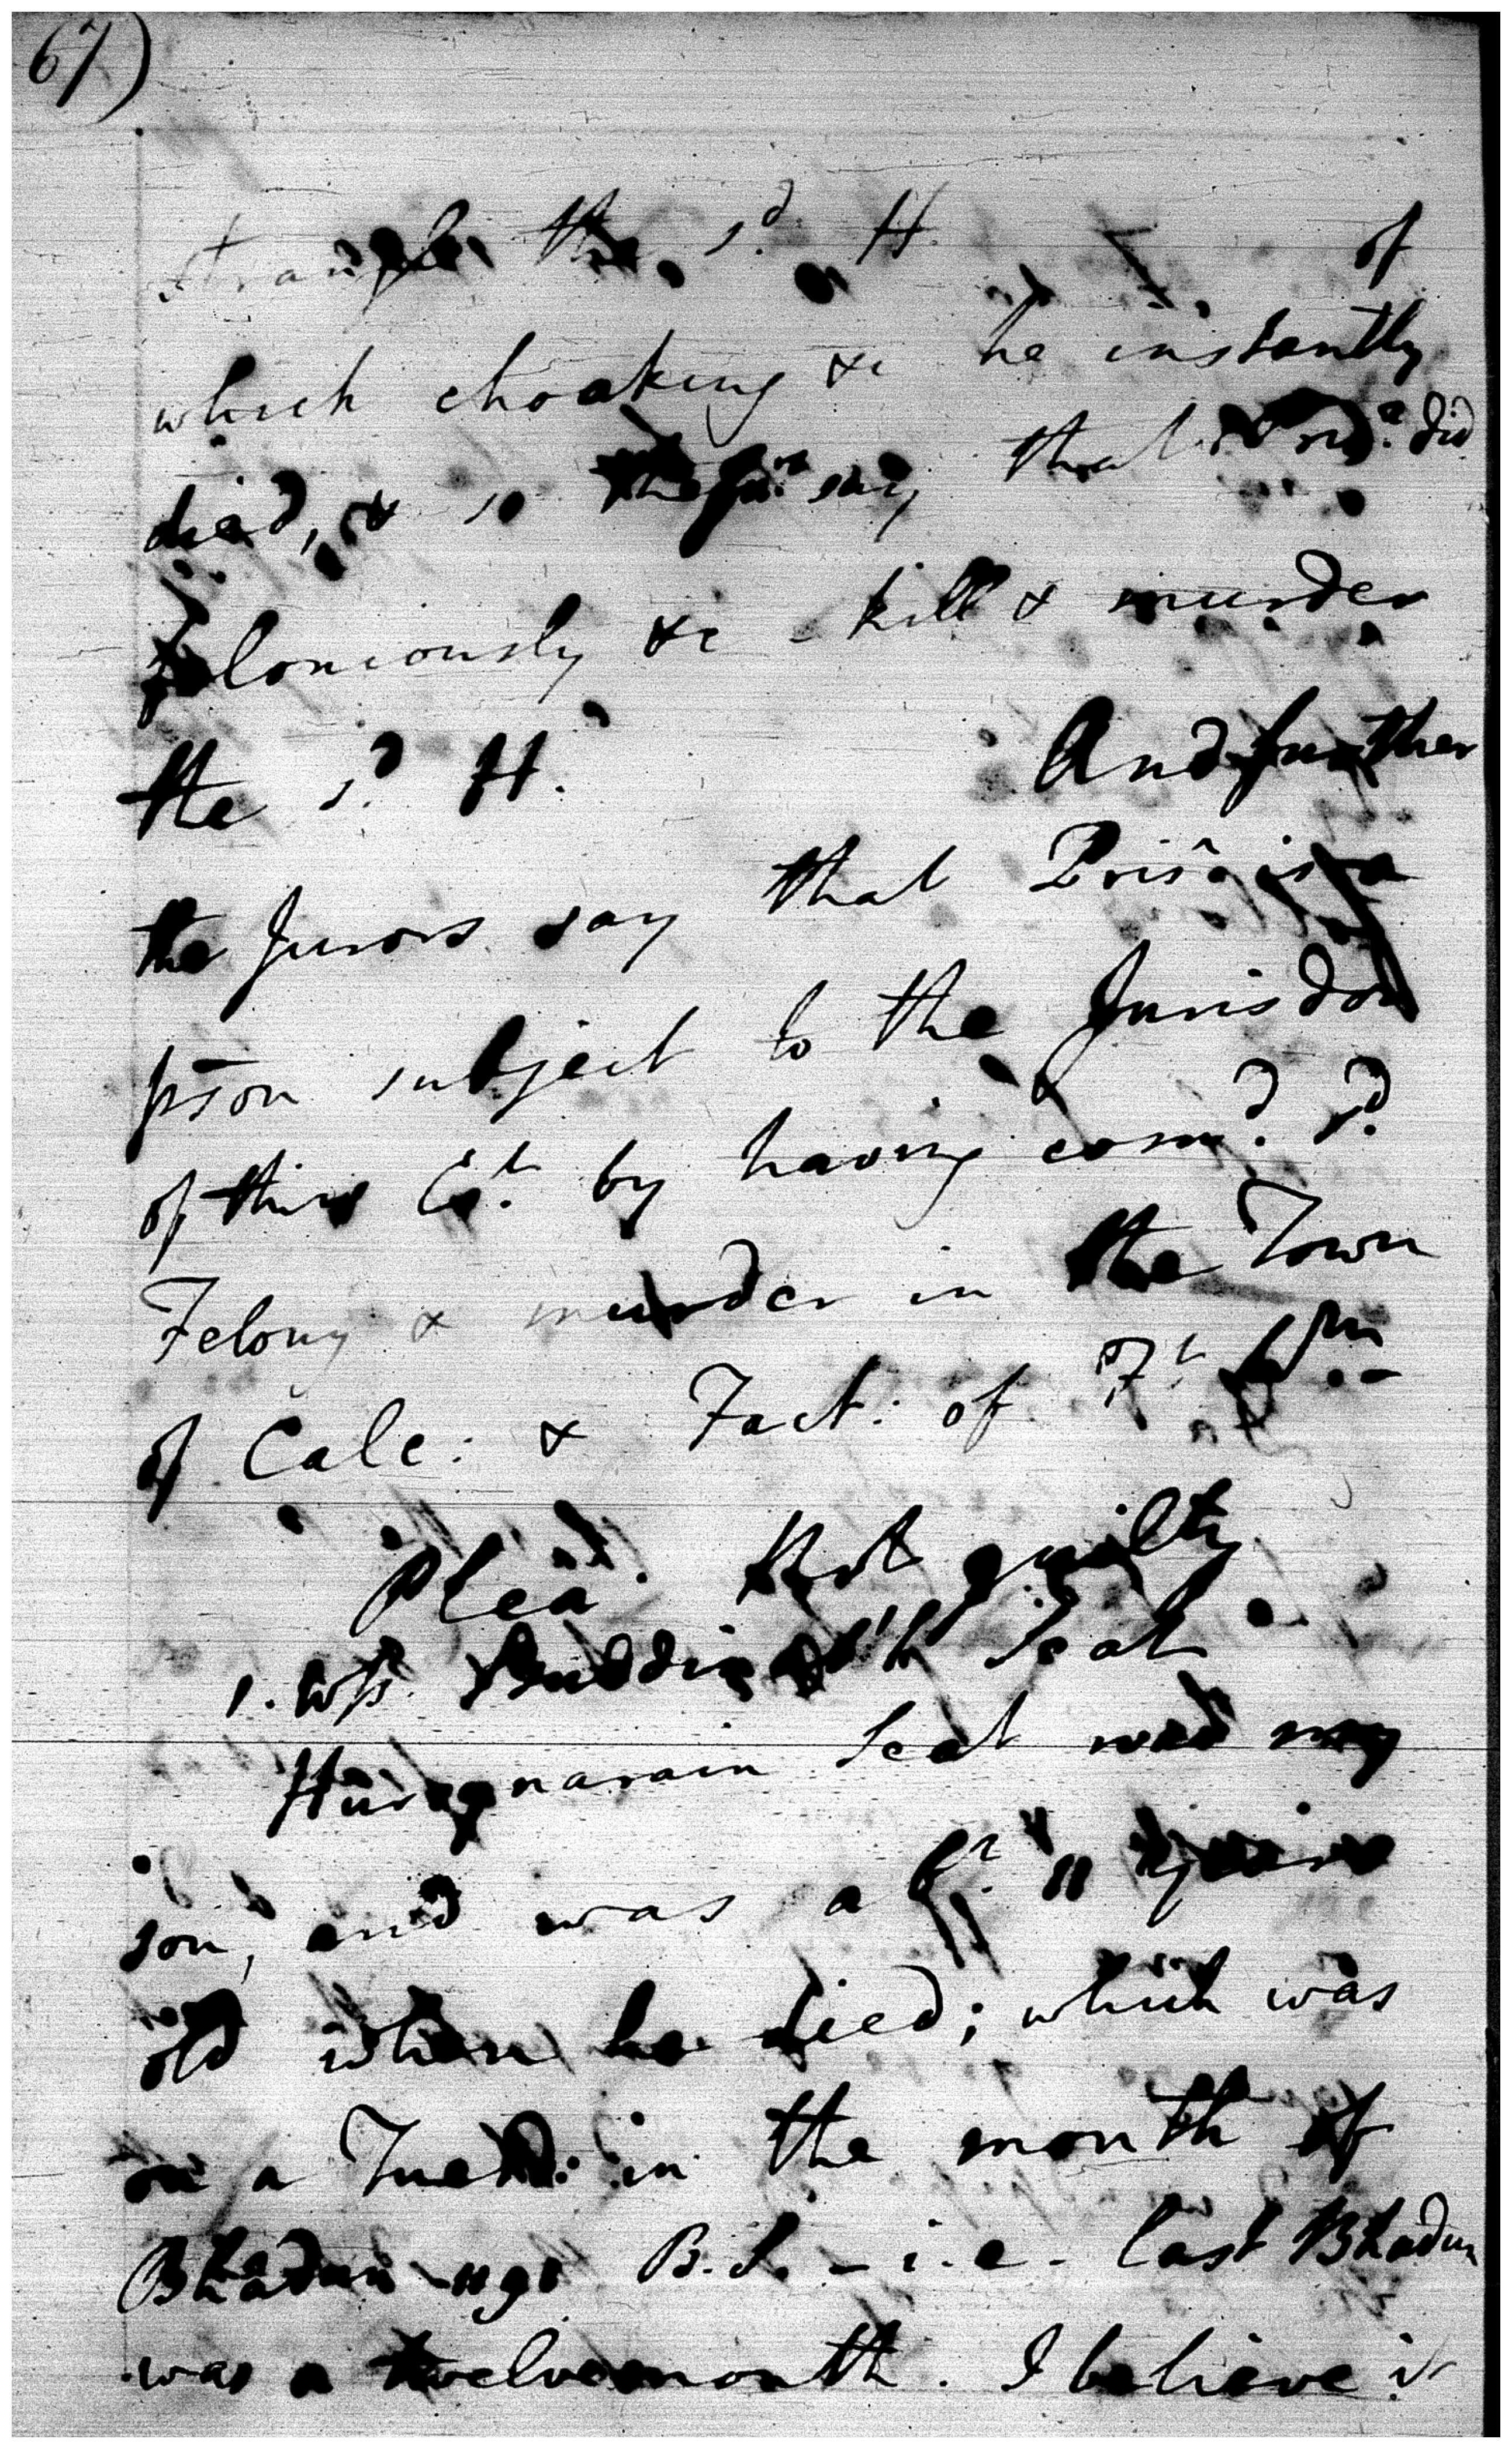 67)
strangle the sd. H. of
which choaking &c he instantly
died, & so the Jurs say that did
feloniously &c - kill & murder
the sd. H. And further
the Jurors say that Prisr is a
pson subject to the Jurisdon
of this Ct. by having comd. sd.
Felony & murder in the Town
of Calc: & Fact: of Ft Wm.-
Plea Not guilty
1. Wts. Buddin Seat
narain Seat was my
son, and was abt. 11 years
old when he died; which was
on a Tuesd: in the month of
Bhadun 1191 B.S. - i.e. last Bhadun
was a twelvemonth. I believe it